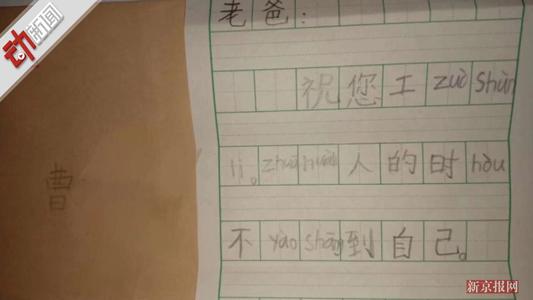 动新闻
老爸：
祝您工zuò shùn
lì。zhuā huài人的时hòu
不yào shāng到自己。
曹
新京报网